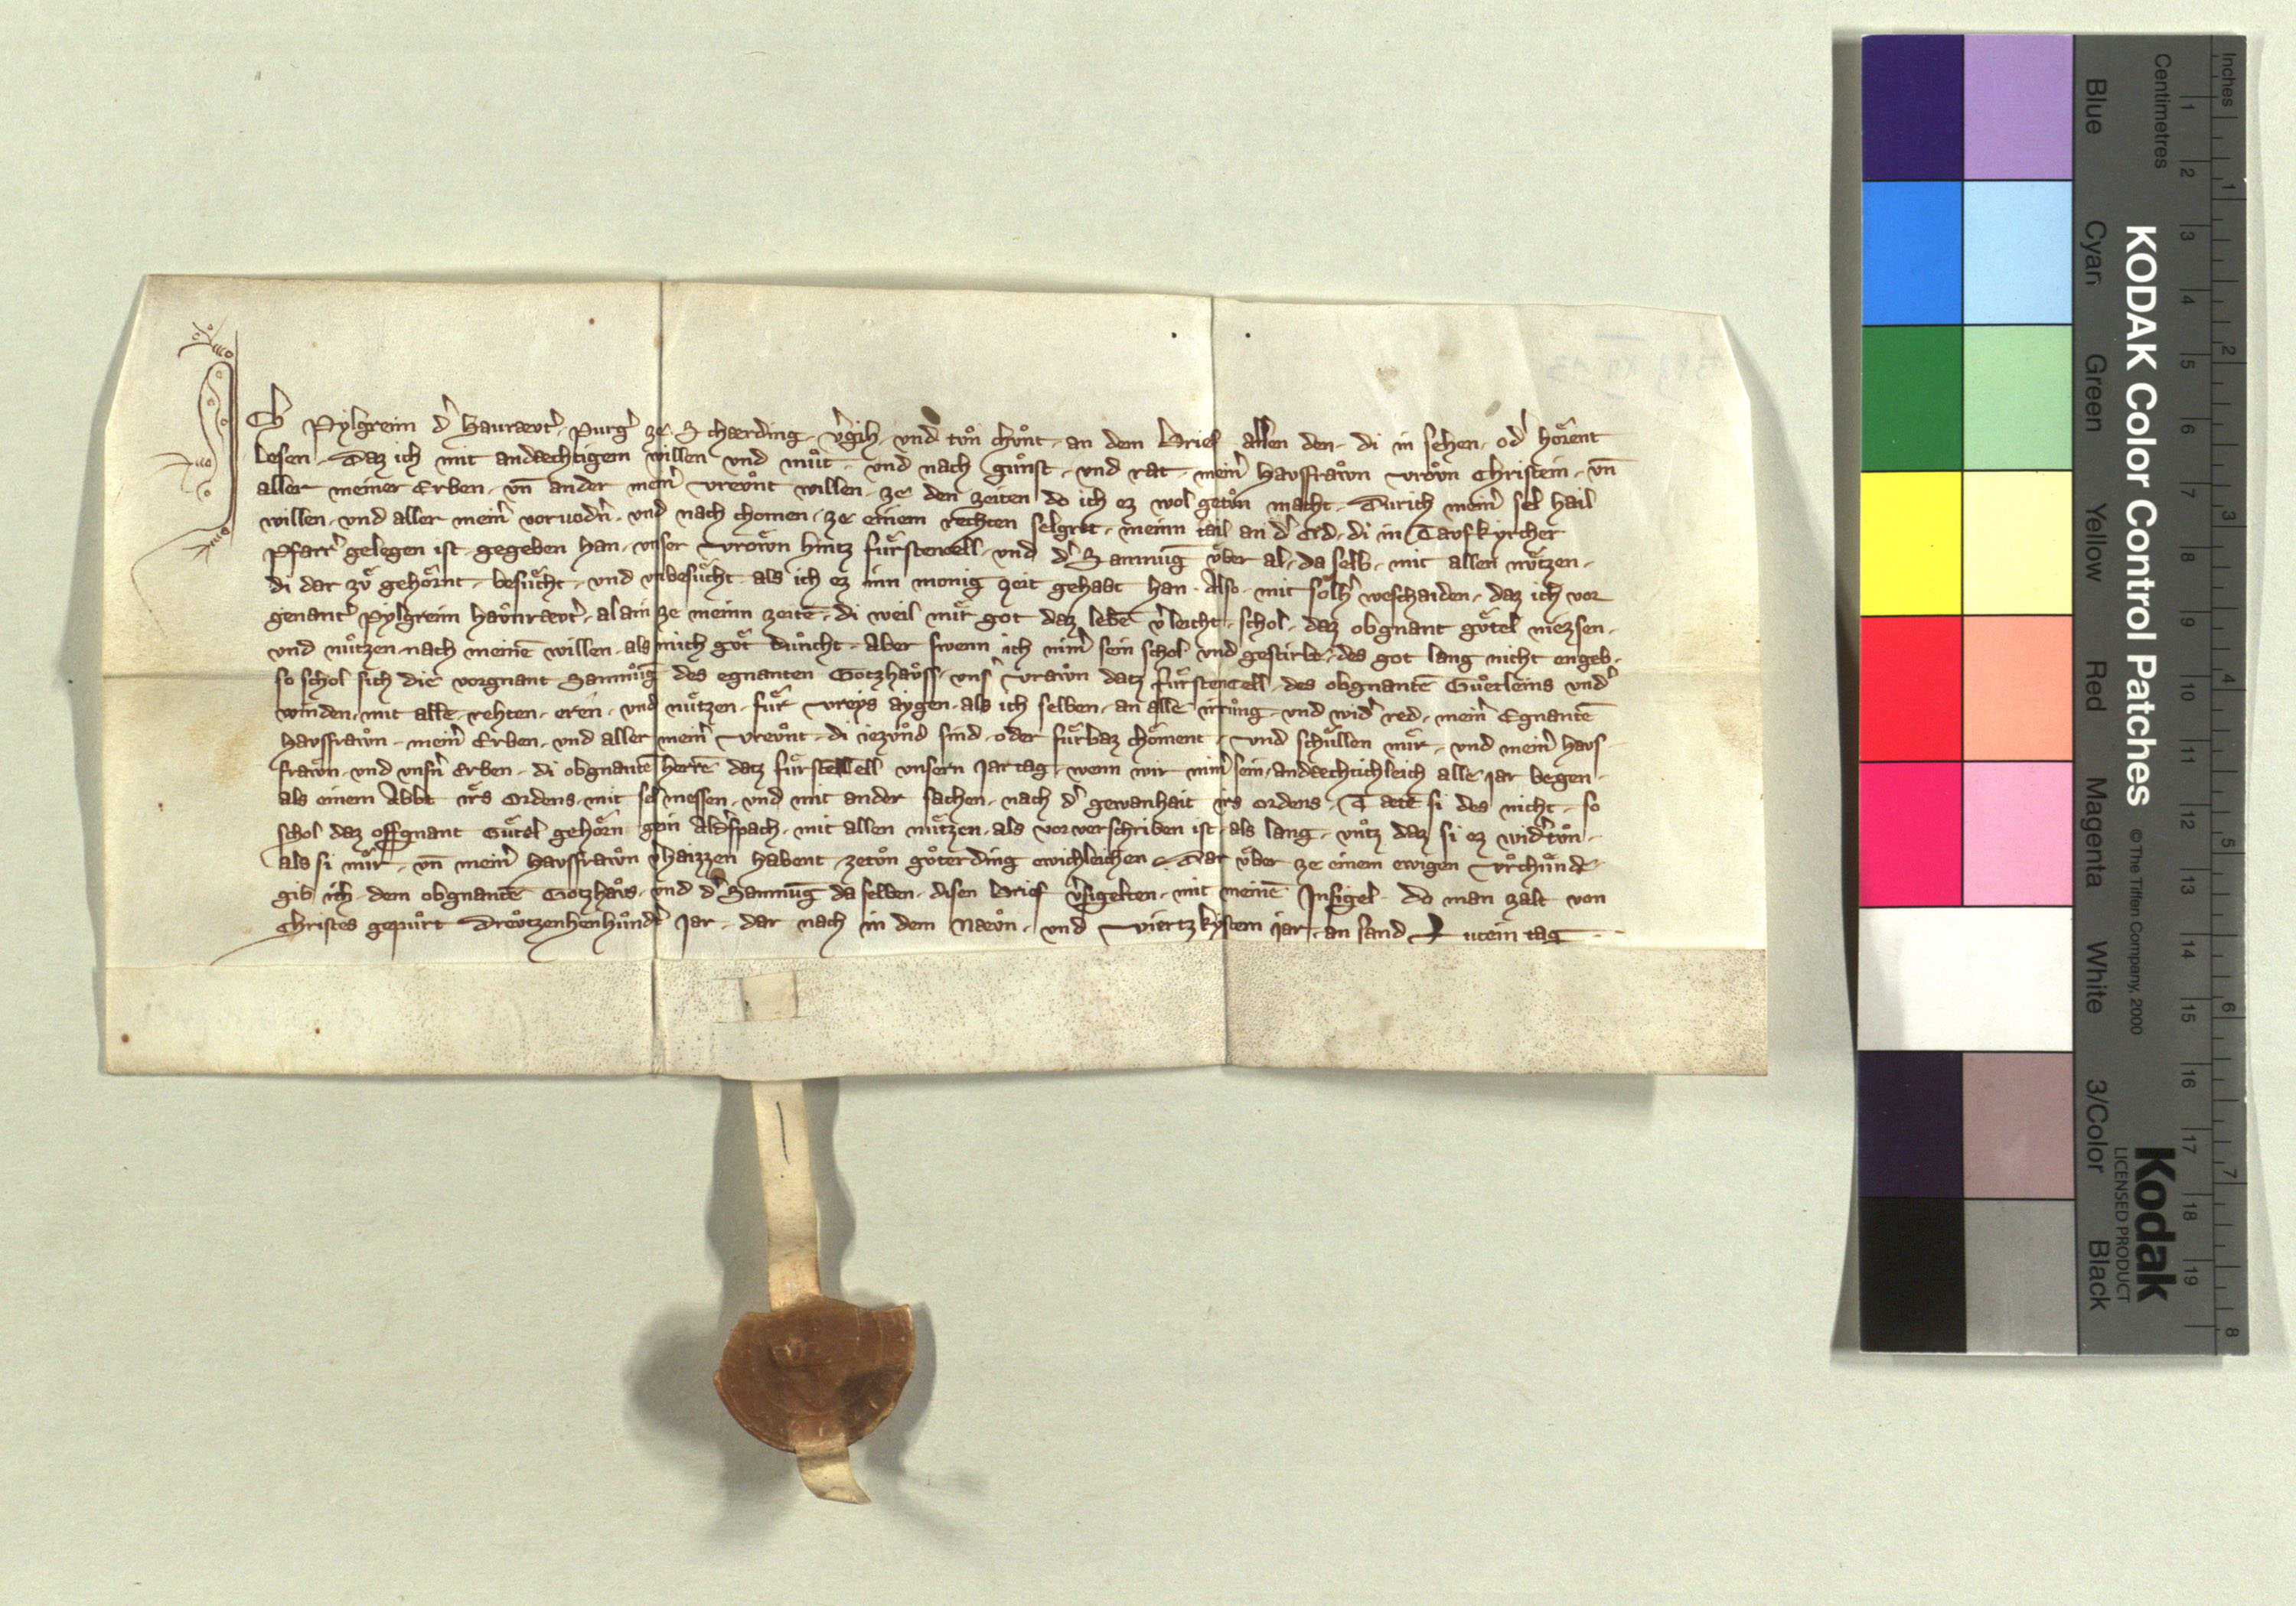 Ich Pylgreim d' Hauraevt', Purg' ze Schaerding, v'gih, und tuͦn chuͦnt, an dem brief allen den, di in sehen, od' hoͤrent
lesen, Daz ich mit andaechtigem willen und muͦt, und nach guͦnst, und rat, mein' Hausfrawͦn Vrowͦn Christein, vn̄
aller meiner Erben, vn̄ ander mein' vreuͦnt willen, ze den zeiten do ich ez wol getuͦn macht, Durich mein' sel hail
willen, und aller mein' voruodn', und nach chomen, ze einem rechten selgret, meinn tail an d' Ord, di in Taufkyrcher
Pfarr' gelegen ist, gegeben han, unser Vrowͤn hintz fuͤrstencell, und d' Samnūg uͤber al, da selb, mit allen nuͤtzen,
di dar zuͤ gehoͤrnt, besuͤcht, und unbesuͤcht, als ich ez inn monig zeit gehabt han, Also, mit solh' weschaiden, daz ich vor
genant' Pylgreim Hauͦnraevt', alain ze meinn zeitē, di weil mir got daz lebē v'leicht, schol, daz obgnant guͤtel niezsen,
und nuͤtzen, nach meinē willen, als mich guͤt duͤncht, Aber swenn ich nim' sein schol und gestirbe, des got lang nicht engeb,
so schol sich die vorgnant Samnuͦg des egnanten Gotzhauͦss, uns' vrawͦn datz fuͤrstencell, des obgnantē Guͦetleins und'
winden, mit allē rehten, eren, und nuͤtzen, fuͤr vreys aygen, als ich selben, an alle irruͦng, und wid' red, mein' Egnantē
Hausfrawͦn, mein' Erben, und aller mein' vreuͦnt, di iezuͦnd sind, oder fuͤrbaz choͤment, und schuͤllen mir, und mein' haus
frawͦn, und unsn' Erben, di obgnantē herrē datz fuͤrstēcell unsern Jartag, wenn wir nim' sein, andaechtichleich alle jar begen,
als einem Abbt irs Ordens, mit selmessen, und mit ander sachen, nach d' gewanhait irs ordens, Taetē si des nicht, so
schol daz offgnant Guͤtel gehoͤrn gein Ald'spach, mit allen nuͤtzen, als vor verschriben ist, als lang, uͦntz daz si ez wid'tuͦn,
als si mir, vn̄ mein' Hausfrawͦn v'haizzen habent, zetuͦn guͦterding ewichleichen, Dar uͤber ze einem ewigen Vrchuͤnde,
gib ich, dem obgnantē Gotzhauͦs, und d' Samnūg da selben, disen brief v'sigelten, mit meinē Insigel, Do man zalt von
Christes gepuͤrt Dreuͦtzenhenhuͦndt' Jar, dar nach in dem naeuͦn, und viertzkystem jar, an sand Lucein tag
KODAK Color Control Patches © The Tiffen Company, 2000
Kodak
LICENSED PRODUCT
Inches 1 2 3 4 5 6 7 8
Centimetres 1 2 3 4 5 6 7 8 9 10 11 12 13 14 15 16 17 18 19
Blue Cyan Green Yellow Red Magenta White 3/Color Black